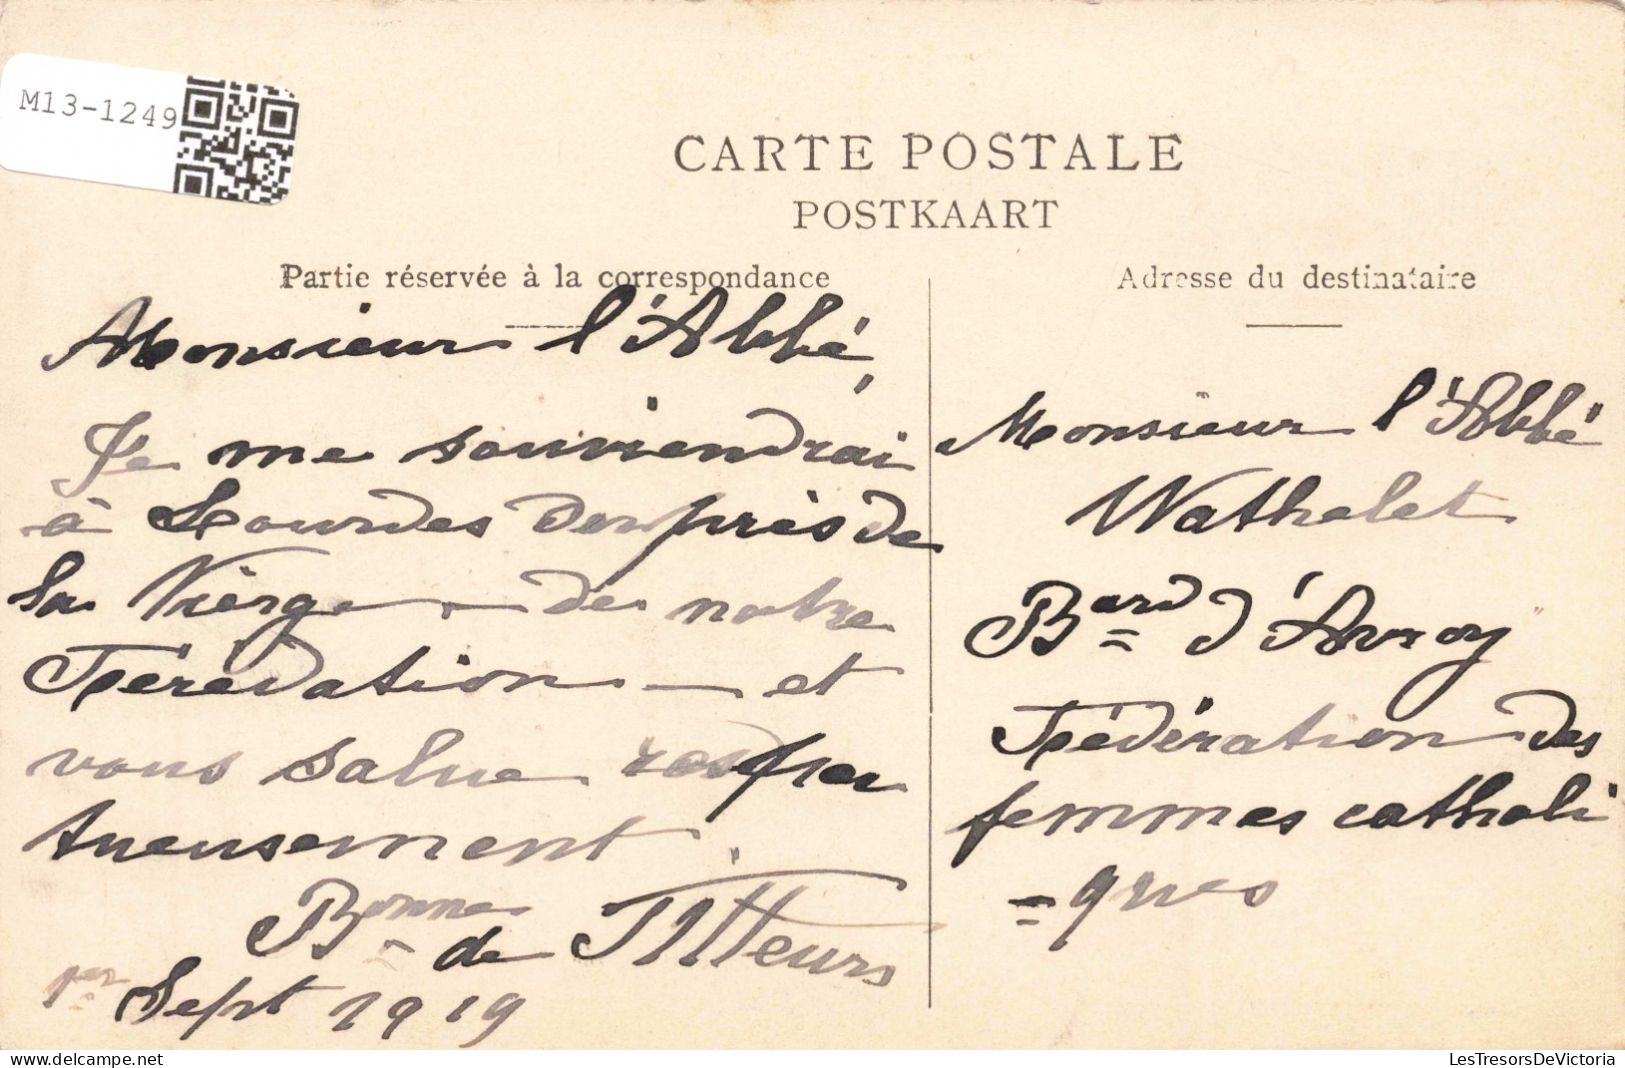 M13-1249
CARTE POSTALE
POSTKAART
Partie réservée à la correspondance
Monsieur l'Abbé,
Je me souviendrai
à Lourdes près de
la Vierge - de notre
Fédération - et
vous salue respec
tueusement.
Bonne de Pitteurs
1er Sept 1919
Adresse du destinataire
Monsieur l'Abbé
Wathelet
Bard d'Avroy
Fédération des
femmes catholi
=ques
LesTresorsDeVictoria